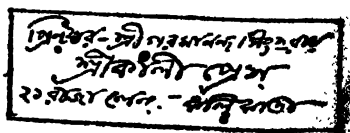 প্রিন্টার - শ্রীপরমানন্দ সিংহ রায়
শ্রীকালী প্রেস
২১ রাজা লেন - কলিকাতা